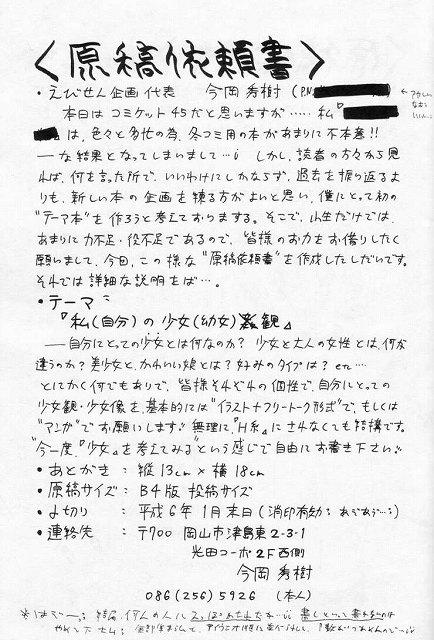 〈原稿依頼書〉
・えびせん企画 代表 今岡秀樹 (P.N.
本日はコミケット45だと思いますが・・・・・私『
は、色々と多忙の為、冬コミ用の本があまりに不本意!!
―な結果となってしまいまして…。しかし、読者の方々から見
れば、何を言った所で、いいわけにしかならず、過去を振り返るよ
りも、新しい本の企画を練る方がよいと思い、僕にとって初の
"テーマ本"を作ろうと考えております。そこで、小生だけでは、
あまりに力不足・役不足であるので、皆様のお力をお借りしたく
願いまして、今回、この様な"原稿依頼書"を作成ししだいです。
それでは詳細な説明をば…。
・テーマ:
『私(自分)の少女(幼女)観』
―自分にとっての少女とは何なのか?少女と大人の女性とは、何が
違うのか?美少女と、かわいい娘とは?好みのタイプは? etc…
とにかく何でもありで、皆様それぞれの個性で、自分にとっての
少女観・少女像を、基本的には"イラスト+フリートーク形式"で、もしくは
"マンガ"でお願いします。無理に『H系』にさなくても結構です。
"今一度、『少女』を考えてみる"という感じで自由にお書き下さい。
・あとがき : 縦13cm×横18cm
・原稿サイズ : B4版 投稿サイズ
・〆切り : 平成6年1月末日(消印有効:
・連絡先 : 〒700 岡山市津島東2-3-1
光田コーポ2F西側
今岡秀樹
086(256)5926 (本人)